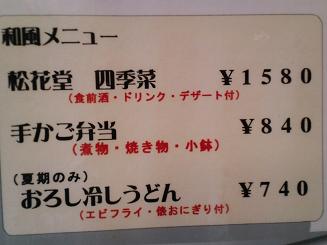 和風メニュー
松花堂 四季菜 ¥1580
(食前酒・ドリンク・デザート付)
手かご弁当 ¥840
(煮物・焼き物・小鉢)
(夏期のみ)
おろし冷しうどん ¥740
(エビフライ・俵おにぎり付)